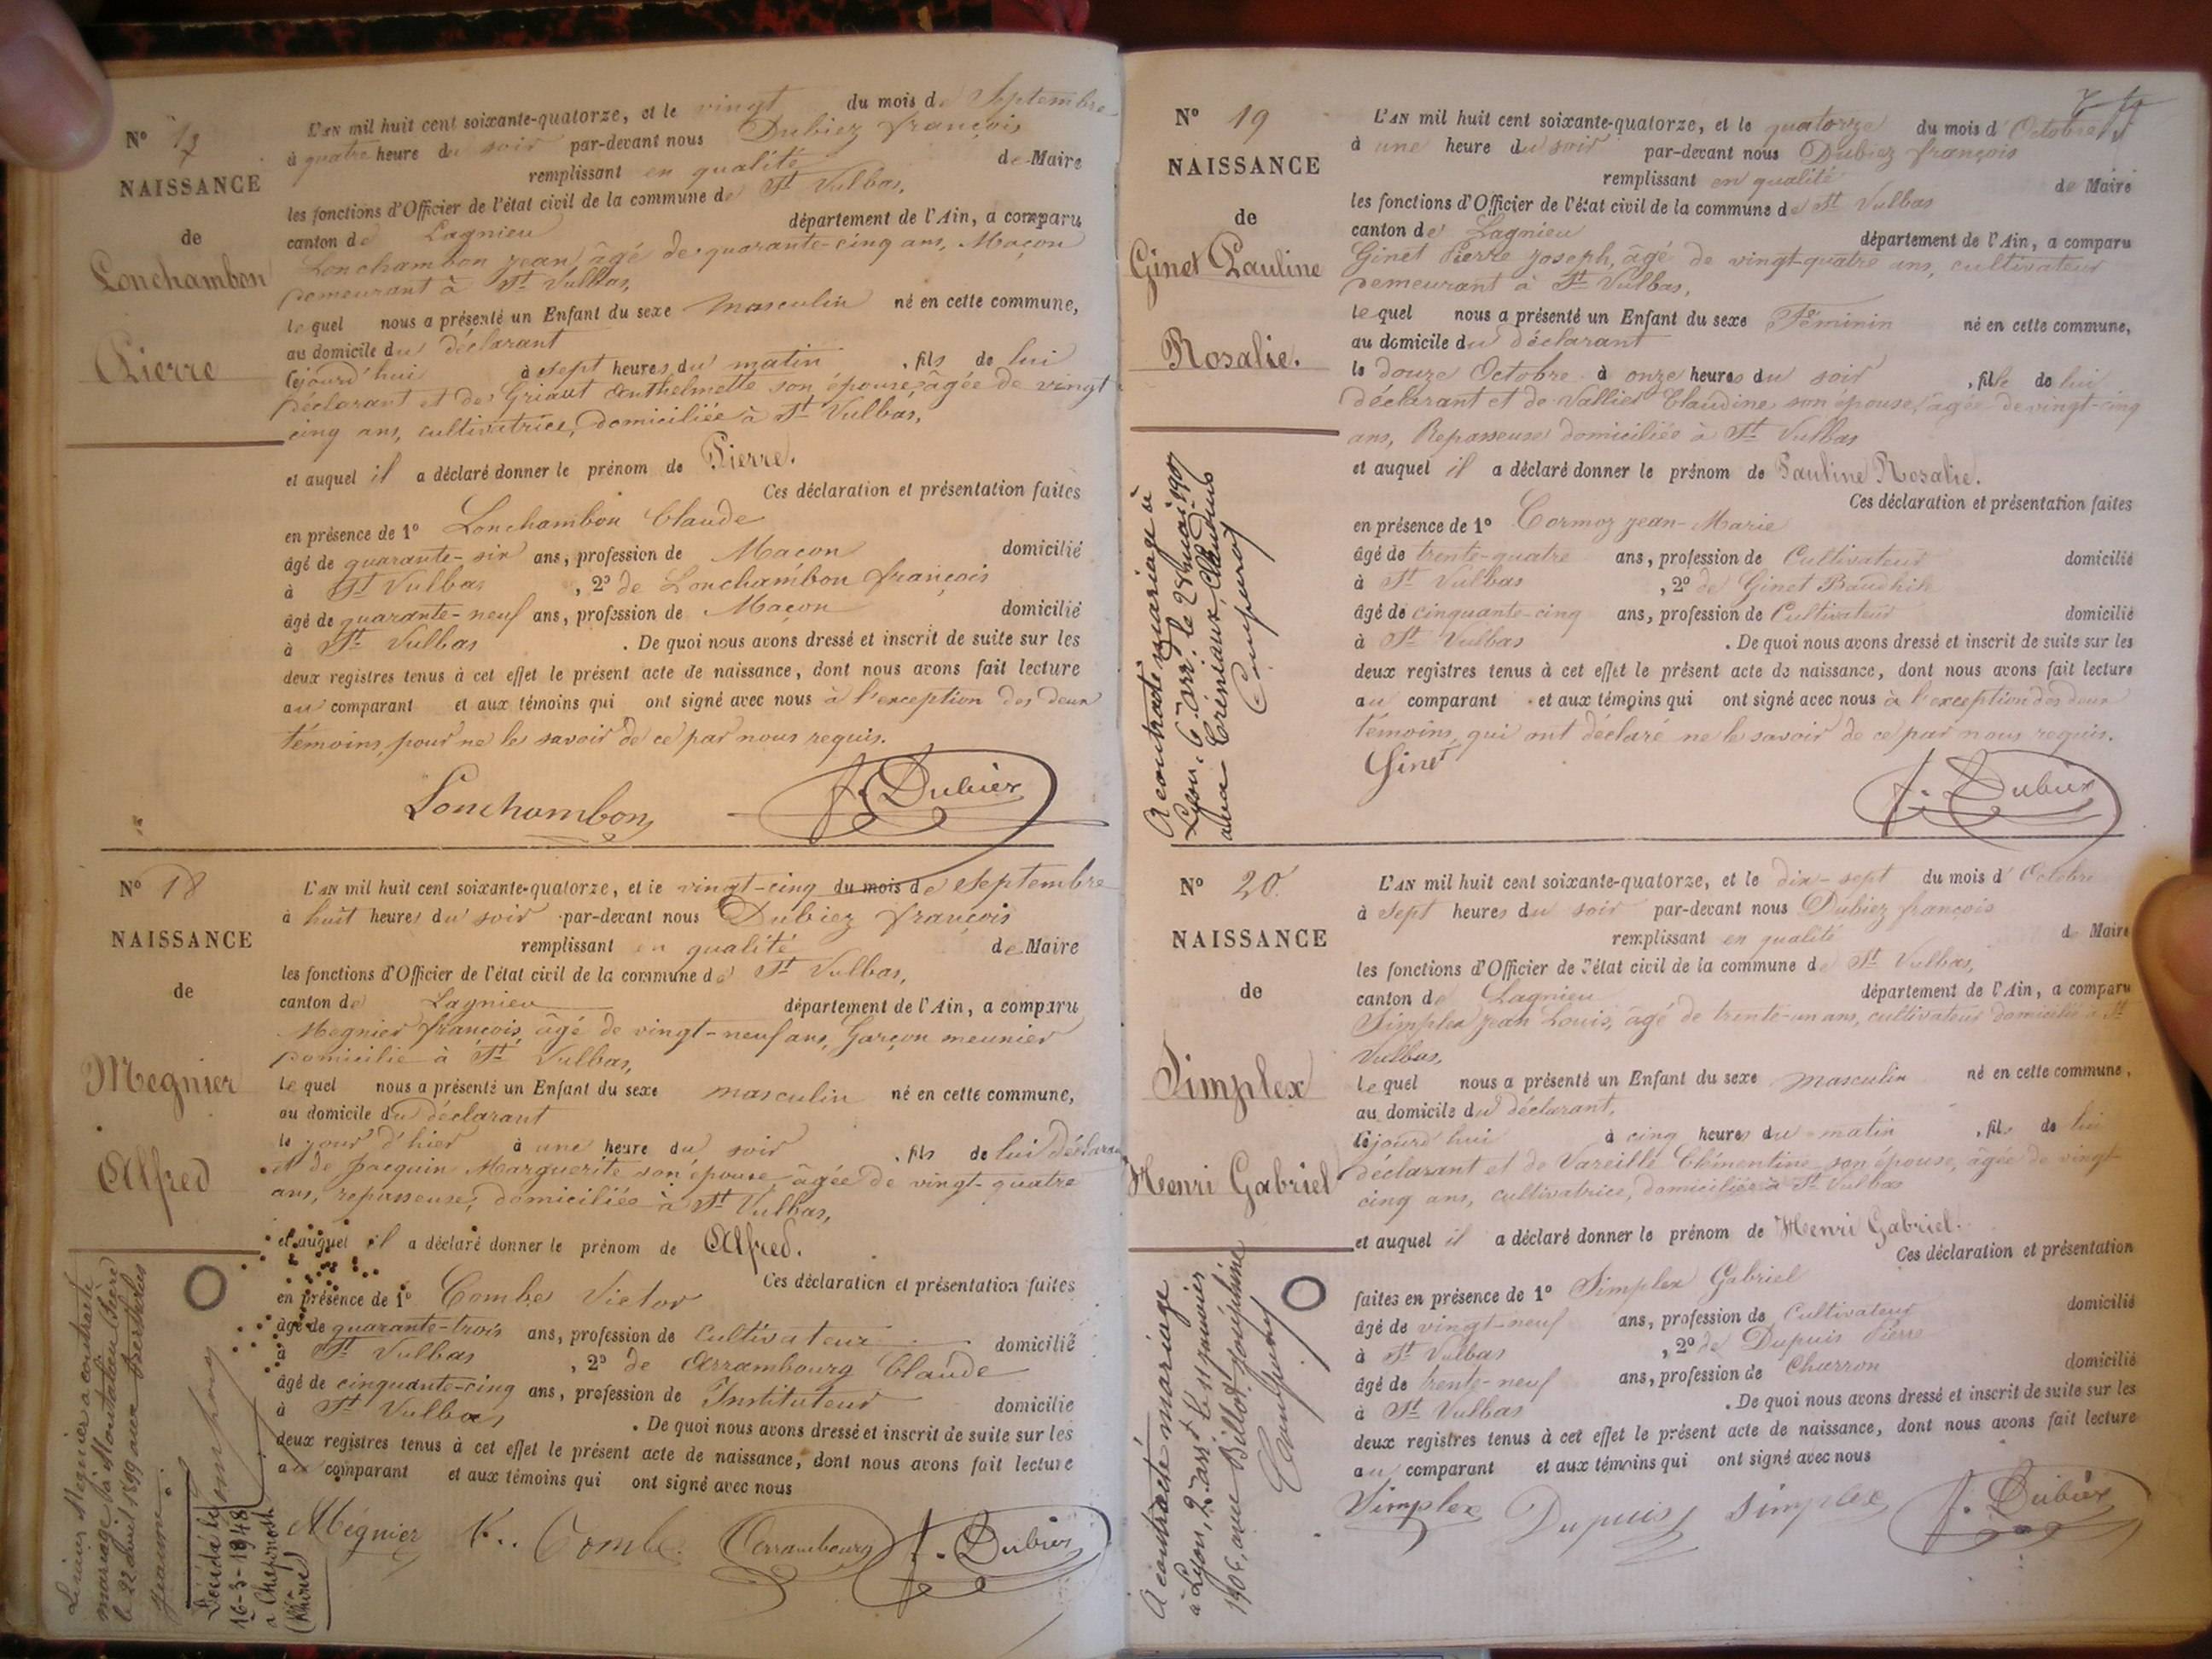 N° 17
NAISSANCE
de
Lonchambon
Pierre
L'AN mil huit cent soixante-quatorze, et le vingt du mois de Septembre
à quatre heure du soir par-devant nous Dubiez françois
remplissant en qualité de Maire
les fonctions d'Officier de l'état civil de la commune de St Vulbas,
canton de Lagnieu département de l'Ain, a comparu
Lonchambon jean, âgé de quarante-cinq ans, Maçon
demeurant à St Vulbas,
lequel nous a présenté un Enfant du sexe masculin né en cette commune,
au domicile du déclarant
cejourd'hui à sept heures du matin, fils de lui
déclarant et de Griaut Anthelmette son épouse âgée de vingt
cinq ans, cultivatrice, domiciliée à St Vulbas,
et auquel il a déclaré donner le prénom de Pierre.
Ces déclaration et présentation faites
en présence de 1° Lonchambon Claude
âgé de quarante-six ans, profession de Maçon domicilié
à St Vulbas, 2° de Lonchambon françois
âgé de quarante-neuf ans, profession de Maçon domicilié
à St Vulbas. De quoi nous avons dressé et inscrit de suite sur les
deux registres tenus à cet effet le présent acte de naissance, dont nous avons fait lecture
au comparant et aux témoins qui ont signé avec nous à l'exception des deux
témoins pour ne le savoir de ce par nous requis.
Lonchambon f. Dubiez
N° 18
NAISSANCE
de
Megnier
Alfred
L'AN mil huit cent soixante-quatorze, et le vingt-cinq du mois de Septembre
à huit heures du soir par-devant nous Dubiez françois
remplissant en qualité de Maire
les fonctions d'Officier de l'état civil de la commune de St Vulbas,
canton de Lagnieu département de l'Ain, a comparu
Megnier françois, âgé de vingt-neuf ans, Garçon meunier
domicilié à St Vulbas,
lequel nous a présenté un Enfant du sexe masculin né en cette commune,
au domicile du déclarant
le jour d'hier à une heure du soir, fils de lui déclarant
et de Jacquin Marguerite son épouse âgée de vingt-quatre
ans, repasseuse, domiciliée à St Vulbas,
et auquel il a déclaré donner le prénom de Alfred.
Ces déclaration et présentation faites
en présence de 1° Combe Victor
âgé de quarante-trois ans, profession de Cultivateur domicilié
à St Vulbas, 2° de Arrambourg Claude
âgé de cinquante-cinq ans, profession de Instituteur domicilié
à St Vulbas. De quoi nous avons dressé et inscrit de suite sur les
deux registres tenus à cet effet le présent acte de naissance, dont nous avons fait lecture
au comparant et aux témoins qui ont signé avec nous
Mégnier V. Combe Arrambourg f. Dubiez
Megnier a contracté
mariage à
le 22 avril 1899 avec
Jeanne
Décédé le
16-3-1948
a Chaponost
(Rhône)
N° 19
NAISSANCE
de
Ginet Pauline
Rosalie.
L'AN mil huit cent soixante-quatorze, et le quatorze du mois d'Octobre
à une heure du soir par-devant nous Dubiez françois
remplissant en qualité de Maire
les fonctions d'Officier de l'état civil de la commune de St Vulbas
canton de Lagnieu département de l'Ain, a comparu
Ginet Pierre joseph, âgé de vingt-quatre ans, cultivateur
demeurant à St Vulbas,
lequel nous a présenté un Enfant du sexe Féminin né en cette commune,
au domicile du déclarant
le douze Octobre à onze heures du soir, fille de lui
déclarant et de Vallier Claudine son épouse, âgée de vingt-cinq
ans, Repasseuse domiciliée à St Vulbas
et auquel il a déclaré donner le prénom de Pauline Rosalie.
Ces déclaration et présentation faites
en présence de 1° Cormoz jean-Marie
âgé de trente-quatre ans, profession de Cultivateur domicilié
à St Vulbas, 2° de Ginet
âgé de cinquante-cinq ans, profession de Cultivateur domicilié
à St Vulbas. De quoi nous avons dressé et inscrit de suite sur les
deux registres tenus à cet effet le présent acte de naissance, dont nous avons fait lecture
au comparant et aux témoins qui ont signé avec nous à l'exception des deux
témoins, qui ont déclaré ne le savoir de ce par nous requis.
Ginet f. Dubiez
A contracté mariage à
Lyon, 6e arr. le 28 mai 1907
avec
N° 20
NAISSANCE
de
Simplex
Henri Gabriel
L'AN mil huit cent soixante-quatorze, et le dix-sept du mois d'Octobre
à sept heures du soir par-devant nous Dubiez françois
remplissant en qualité de Maire
les fonctions d'Officier de l'état civil de la commune de St Vulbas,
canton de Lagnieu département de l'Ain, a comparu
Simplex jean Louis, âgé de trente-un ans, cultivateur domicilié à St
Vulbas,
lequel nous a présenté un Enfant du sexe masculin né en cette commune,
au domicile du déclarant,
cejourd'hui à cinq heures du matin, fils de lui
déclarant et de Vareille Clémentine son épouse, âgée de vingt
cinq ans, cultivatrice, domiciliée à St Vulbas
et auquel il a déclaré donner le prénom de Henri Gabriel.
Ces déclaration et présentation
faites en présence de 1° Simplex Gabriel
âgé de vingt-neuf ans, profession de Cultivateur domicilié
à St Vulbas, 2° de Dupuis Pierre
âgé de trente-neuf ans, profession de Charron domicilié
à St Vulbas. De quoi nous avons dressé et inscrit de suite sur les
deux registres tenus à cet effet le présent acte de naissance, dont nous avons fait lecture
au comparant et aux témoins qui ont signé avec nous
Simplex Dupuis Simplex f. Dubiez
A contracté mariage
à Lyon, 2e arrt le 11 janvier
1906, avec Billot Joséphine